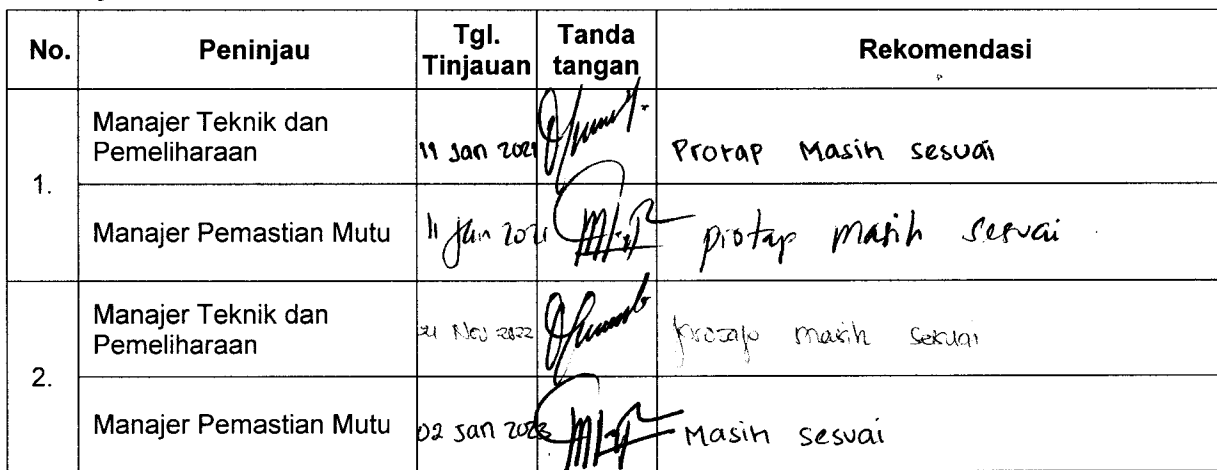 No. Peninjau Tgl. Tinjauan Tanda tangan Rekomendasi
1. Manajer Teknik dan Pemeliharaan 11 Jan 2021 Protap Masih sesuai
Manajer Pemastian Mutu 11 Jan 2021 protap masih sesuai
2. Manajer Teknik dan Pemeliharaan Nov 2022 protap masih sesuai
Manajer Pemastian Mutu 02 Jan 2023 Masih sesuai